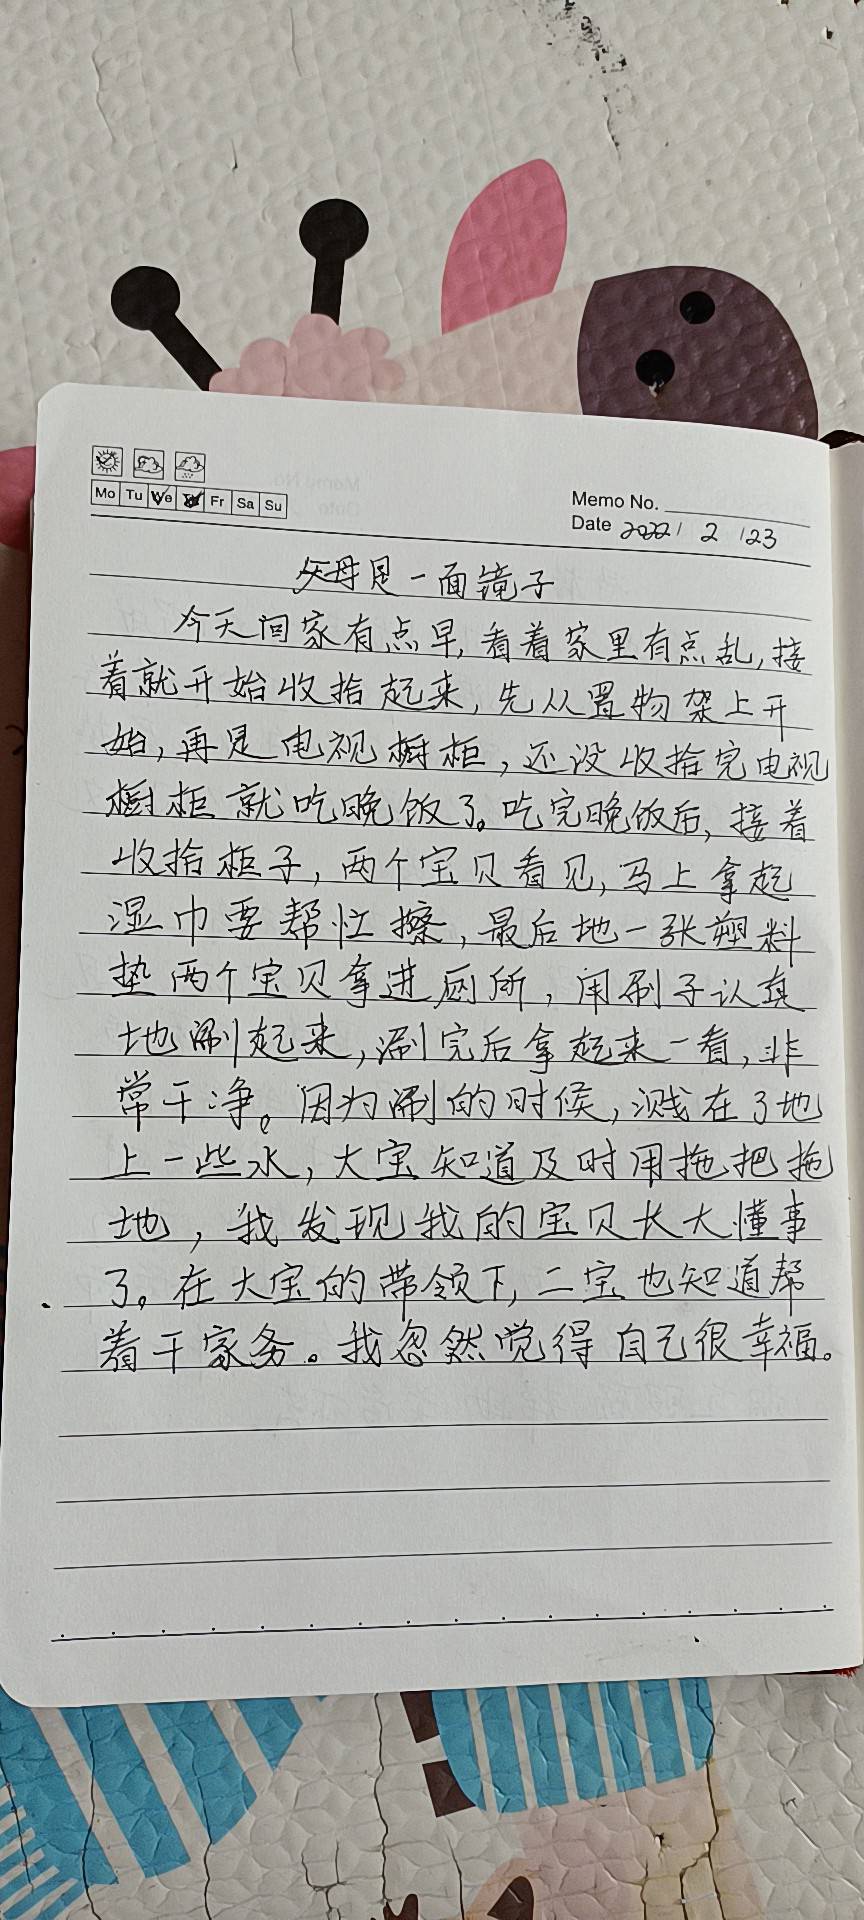 Mo Tu We Fr Sa Su
Memo No.
Date 2022 / 2 / 23
父母是一面镜子
今天回家有点早,看着家里有点乱,接
着就开始收拾起来,先从置物架上开
始,再是电视橱柜,还没收拾完电视
橱柜就吃晚饭了。吃完晚饭后,接着
收拾柜子,两个宝贝看见,马上拿起
湿巾要帮忙擦,最后地一张塑料
垫两个宝贝拿进厕所,用刷子认真
地涮起来,涮完后拿起来一看,非
常干净。因为涮的时候,溅在了地
上一些水,大宝知道及时用拖把拖
地,我发现我的宝贝长大懂事
了。在大宝的带领下,二宝也知道帮
着干家务。我忽然觉得自己很幸福。